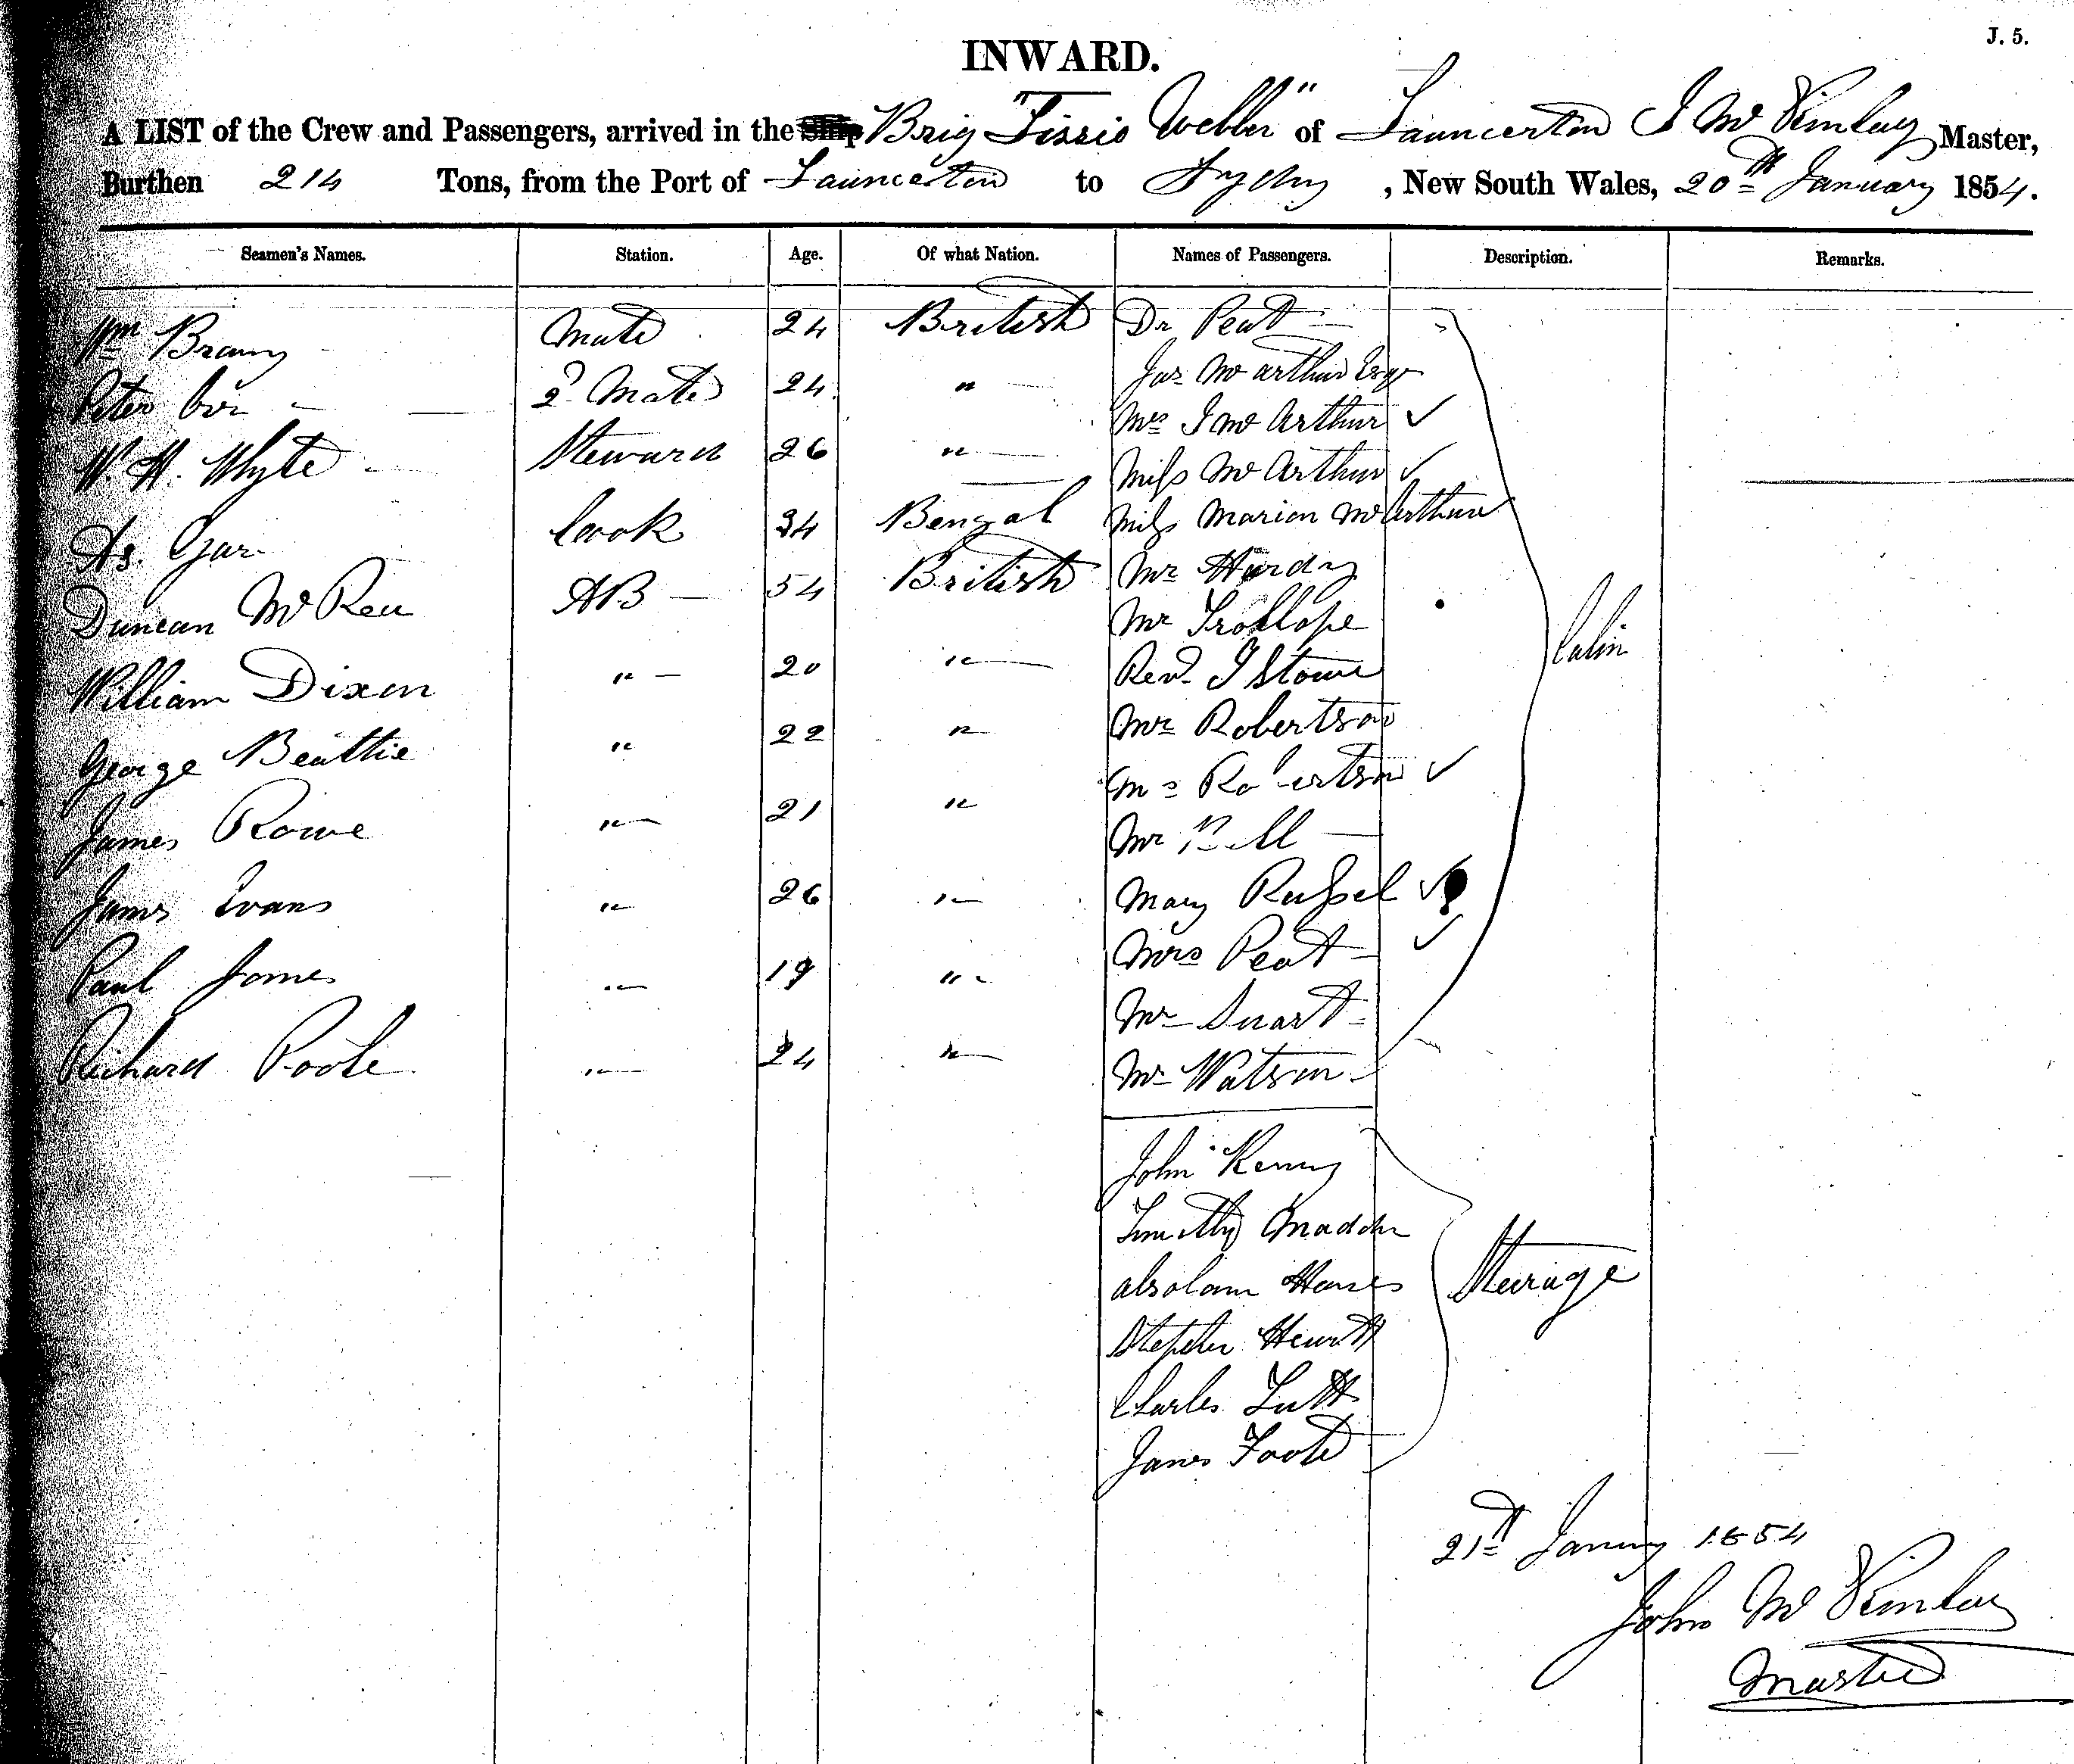 J. 5.
INWARD.
A LIST of the Crew and Passengers, arrived in the Ship Brig "Lizzie Webber" of Launceston J McKinlay Master,
Burthen 214 Tons, from the Port of Launceston to Sydney, New South Wales, 20th January 1854.
Seamen's Names. Station. Age. Of what Nation. Names of Passengers. Description. Remarks.
Wm Mate 24 British Dr Peat
Jas McArthur Esqr
Peter 2d Mate 24 "
Mrs J McArthur ✓
W. H. Whyte Steward 26 "
Miss McArthur ✓
Cook 34 Bengal Miss Marion McArthur
Mr Hardy
Duncan McRea AB 54 British
Mr Trollope
Cabin
William Dixon " 20 " Revd J Stowe
Mr Robertson
George Beattie " 22 "
Mrs Robertson ✓
James Rowe " 21 " Mr
James Evans " 26 " Mary Russel ✓
Mrs Peat ✓
Paul James " 19 "
Mr Stuart
Richard Poole " 24 " Mr Watson
John Kenny
Timothy Madden
Absolam Steerage
Stephen Hewitt
Charles
James Foote
21st January 1854
John McKinlay
Master